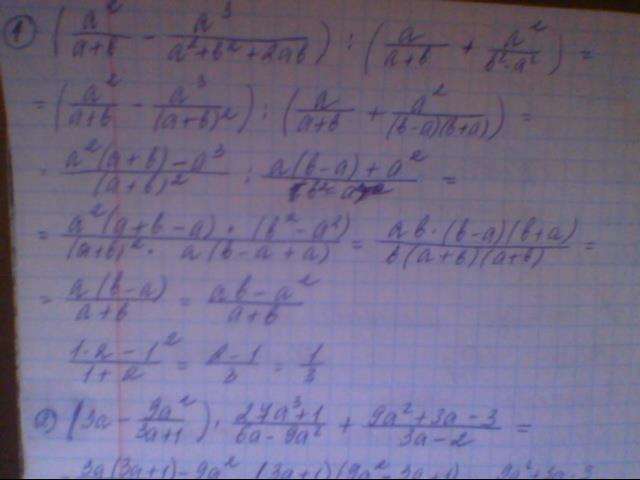 1 (a²/(a+b) - a³/(a²+b²+2ab)) : (a/(a+b) + a²/(b²-a²)) =
= (a²/(a+b) - a³/(a+b)²) : (a/(a+b) + a²/((b-a)(b+a))) =
= (a²(a+b)-a³)/(a+b)² : (a(b-a)+a²)/(b²-a²) =
= (a²(a+b-a)·(b²-a²))/((a+b)²· a(b-a+a)) = (ab·(b-a)(b+a))/(b(a+b)(a+b)) =
= a(b-a)/(a+b) = (ab-a²)/(a+b)
(1·2-1²)/(1+2) = (2-1)/3 = 1/3
2) (3a - 9a²/(3a+1)) · (27a³+1)/(6a-9a²) + (9a²+3a-3)/(3a-2) =